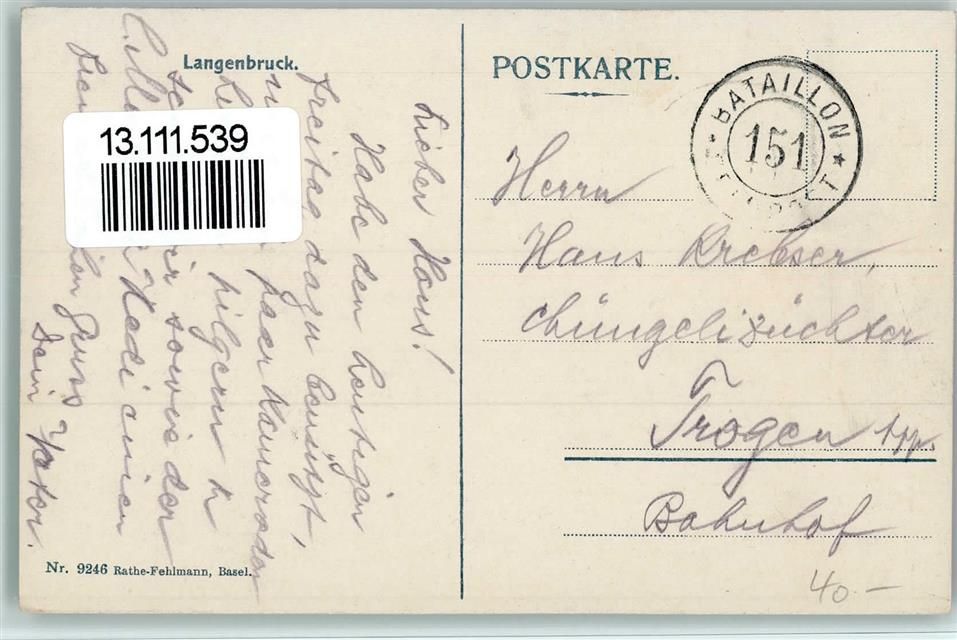 Langenbruck.
POSTKARTE.
BATAILLON
151
13.111.539
Lieber Hans!
Habe den heutigen
Freitag dazu benützt,
paar Kameraden
pilgern
sowie der
Hedi einen
Gruss
Dein Vater.
Herrn
Hans Krebser,
Chüngelizüchter
Trogen App.
Bahnhof
Nr. 9246 Rathe-Fehlmann, Basel.
40.-